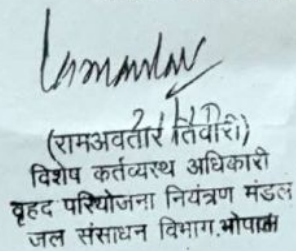 (रामअवतार तिवारी)
विशेष कर्तव्यस्थ अधिकारी
वृहद परियोजना नियंत्रण मंडल
जल संसाधन विभाग.भोपाल